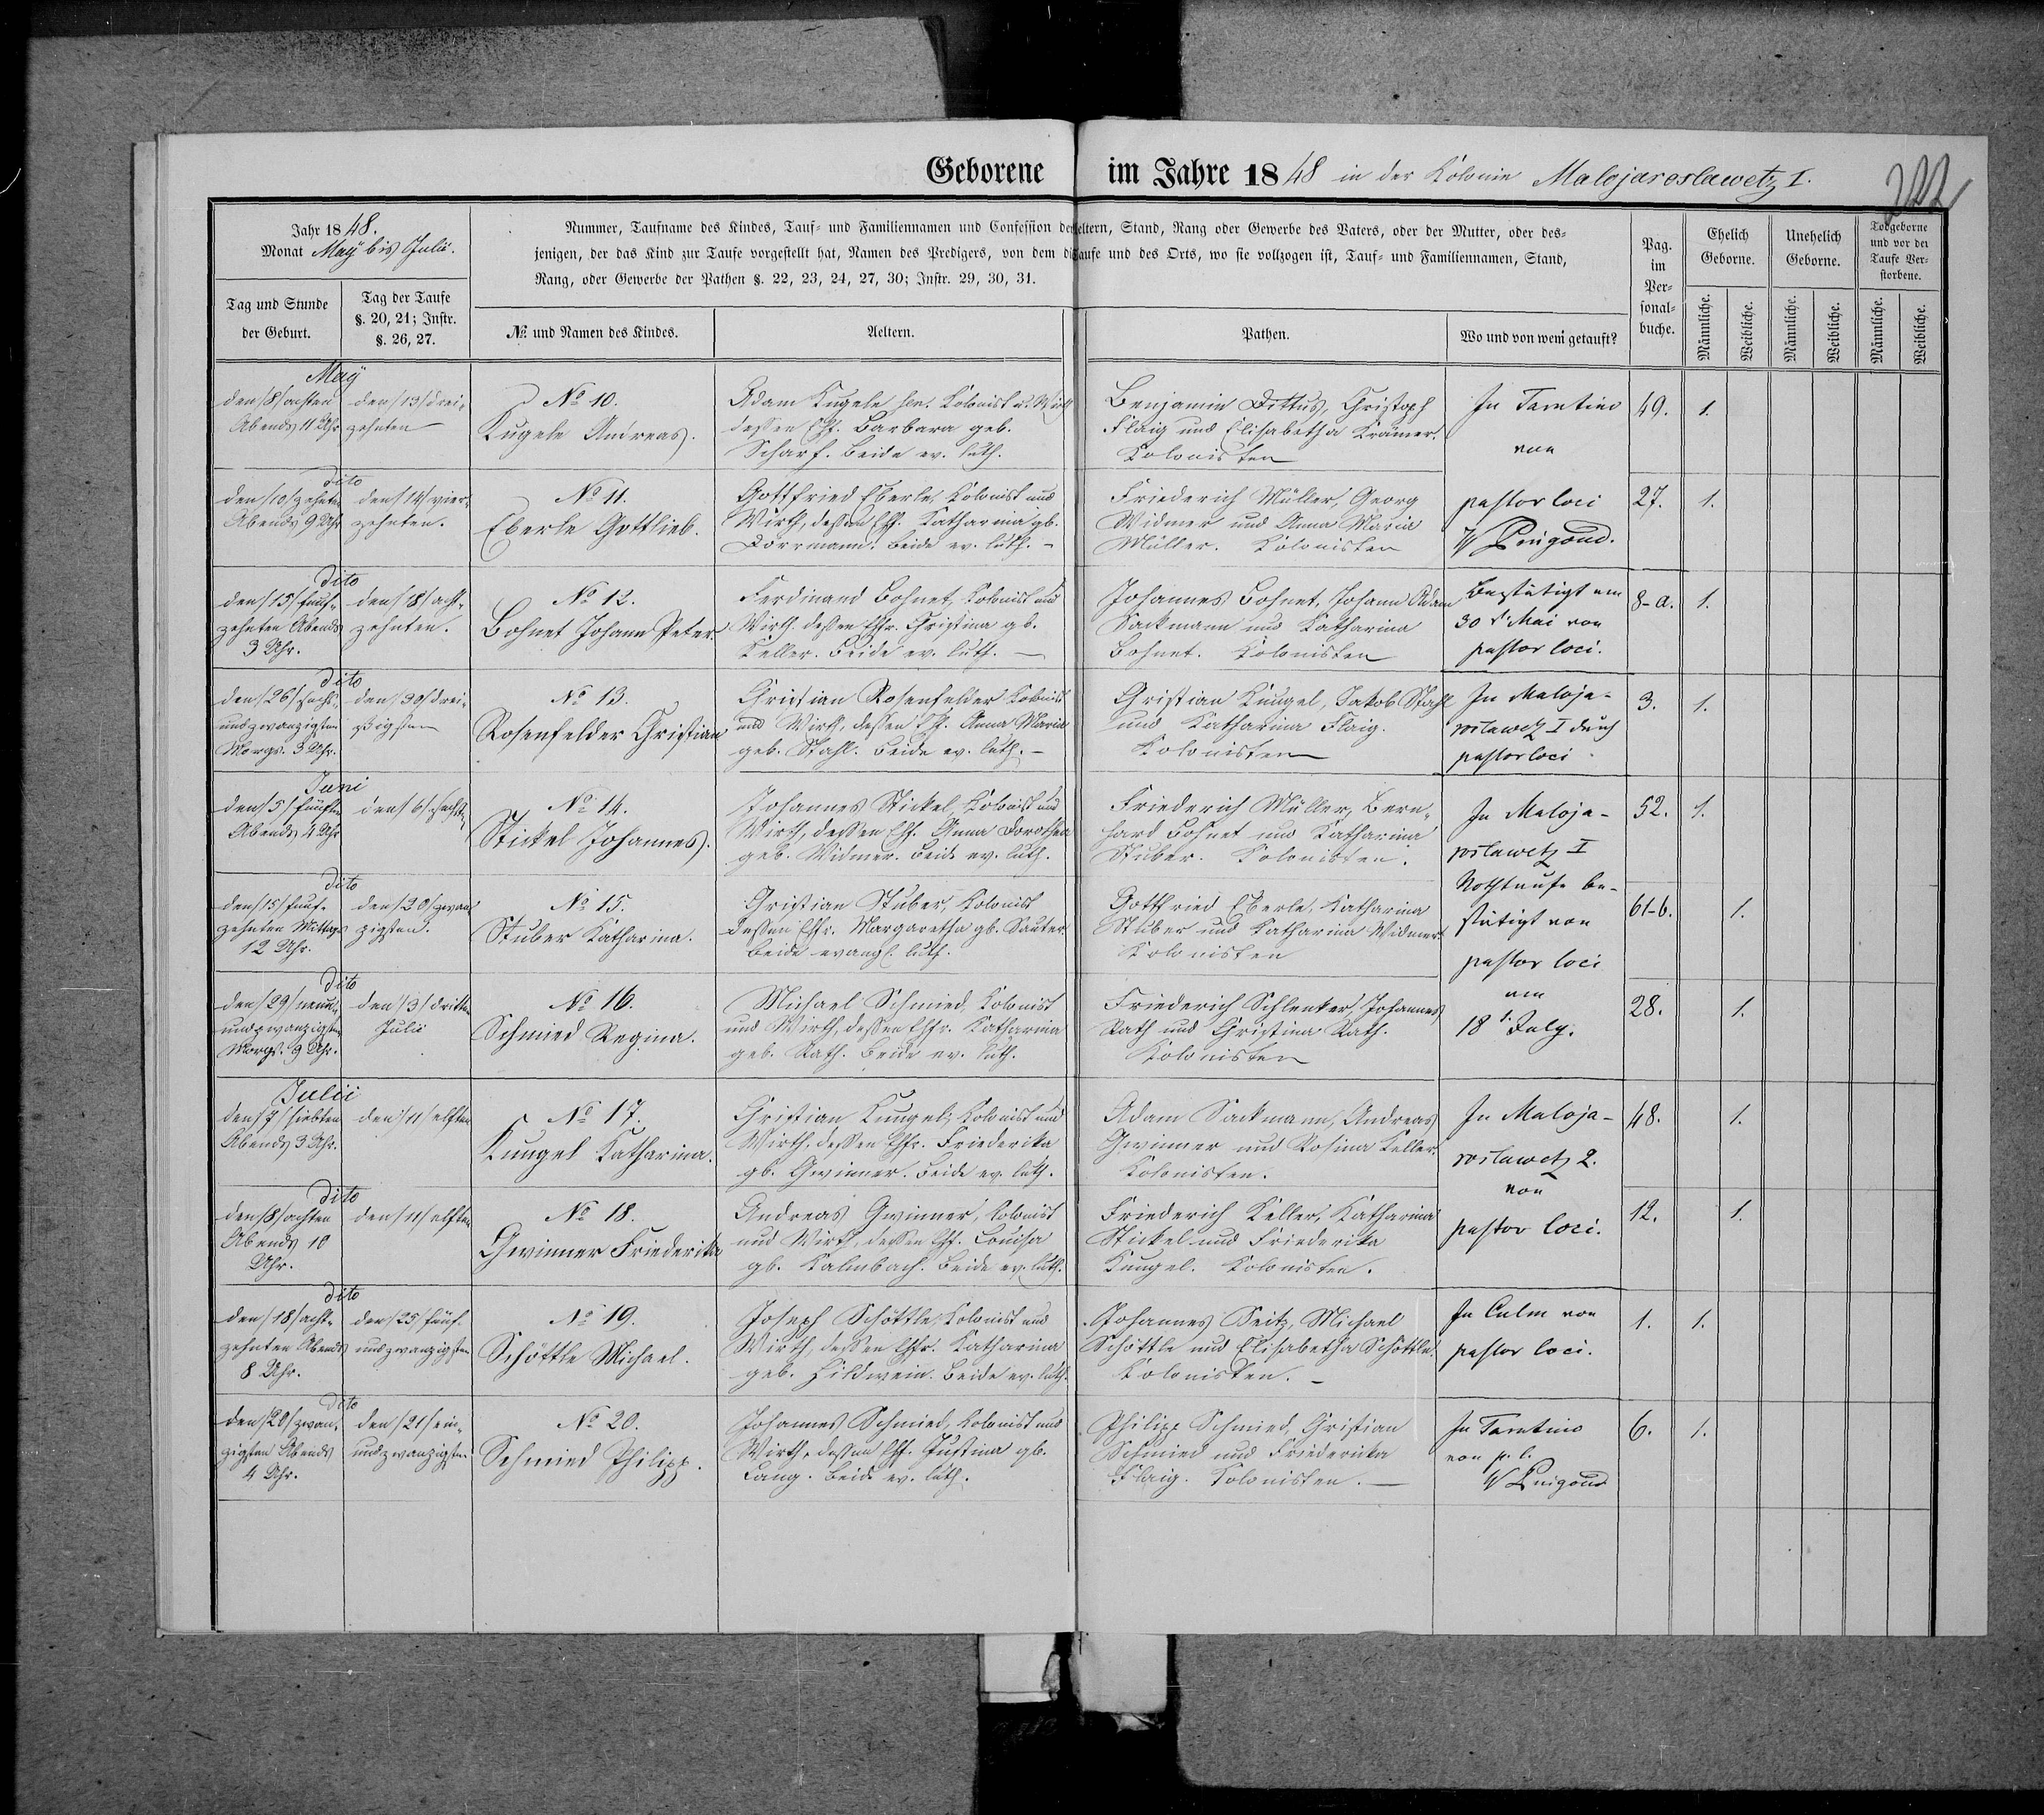 Geborene im Jahre 1848 in der Kolonie Malojaroslawetz I.
222
Jahr 1848.
Monat May bis Julii.
Nummer, Taufname des Kindes, Tauf- und Familiennamen und Confession der Aeltern, Stand, Rang oder Gewerbe des Vaters, oder der Mutter, oder des-
jenigen, der das Kind zur Taufe vorgestellt hat, Namen des Predigers, von dem die Taufe und des Orts, wo sie vollzogen ist, Tauf- und Familiennamen, Stand,
Rang, oder Gewerbe der Pathen §. 22, 23, 24, 27, 30; Instr. 29, 30, 31.
Pag. im Per- sonal- buche.
Ehelich Geborne.
Unehelich Geborne.
Todgeborne und vor der Taufe Ver- storbene.
Tag und Stunde der Geburt.
Tag der Taufe §. 20, 21; Instr. §. 26, 27.
№ und Namen des Kindes.
Aeltern.
Pathen.
Wo und von wem getauft?
Männliche. Weibliche. Männliche. Weibliche. Männliche. Weibliche.
May
den /8/ achten
Abends 11 Uhr
den /13/ drei-
zehnten
No 10.
Kugele Andreas.
Adam Kugele Kolonist u. Wirth
dessen Ehf. Barbara geb.
Scharf. Beide ev. luth.
Benjamin Dittus, Christoph
Flaig und Elisabetha Krämer.
Kolonisten
In Tarutino
von
49.
1.
dito
den /10/ zehnten
Abends 9 Uhr
den /14/ vier-
zehnten.
No 11.
Eberle Gottlieb.
Gottfried Eberle, Kolonist und
Wirth, dessen Ehf. Katharina gb.
Dorrmann. Beide ev. luth. –
Friederich Müller, Georg
Widmer und Anna Maria
Müller. Kolonisten
pastor loci
W Pingoud.
27.
1.
dito
den /15/ fünf-
zehnten Abends
3 Uhr.
den /18/ acht-
zehnten.
No 12.
Bohnet Johann Peter
Ferdinand Bohnet, Kolonist und
Wirth dessen Ehfr. Christina gb.
Keller. Beide ev. luth. –
Johannes Bohnet, Johann Adam
Sackmann und Katharina
Bohnet. Kolonisten
Bestätigt am
30 t. Mai von
pastor loci.
8-a.
1.
dito
den /26/ sechs-
undzwanzigsten
Morgs. 3 Uhr.
den /30/ drei-
ßigsten
No 13.
Rosenfelder Christian
Christian Rosenfelder Kolonist
und Wirth, dessen Ehf. Anna Maria
geb. Stahl. Beide ev. luth. –
Christian Kungel, Jakob Stahl
und Katharina Flaig.
Kolonisten
In Maloja-
roslawetz I durch
pastor loci
3.
1.
Juni
den /5/ fünften
Abends 4 Uhr
den /6/ sechsten
No 14.
Stickel Johannes.
Johannes Stickel, Kolonist und
Wirth, dessen Ehf. Anna Dorothea
geb. Widmer. Beide ev. luth.
Friederich Müller, Bern-
hard Bohnet und Katharina
Stuber. Kolonisten.
In Maloja-
roslawetz I
52.
1.
dito
den /15/ fünf-
zehnten Mittags
12 Uhr.
den /20/ zwan-
zigsten.
No 15.
Stuber Katharina.
Christian Stuber, Kolonist
dessen Ehfr. Margaretha gb. Sauter.
Beide evangl. luth.
Gottfried Eberle, Katharina
Stuber und Katharina Widmer.
Kolonisten
Nothtaufe be-
stätigt von
pastor loci
61-b.
1.
dito
den /29/ neun-
undzwanzigsten
Morgs. 9 Uhr.
den /3/ dritten
Julii
No 16.
Schmied Regina.
Michael Schmied, Kolonist
und Wirth, dessen Ehfr. Katharina
geb. Rath. Beide ev. luth.
Friederich Schlenker, Johannes
Rath und Christina Rath.
Kolonisten
am
18 t. July.
28.
1.
Julii
den /7/ siebten
Abends 3 Uhr.
den /11/ elften
No 17.
Kungel Katharina.
Christian Kungel, Kolonist und
Wirth, dessen Ehfr. Friederika
gb. Gwinner. Beide ev. luth.
Adam Sackmann, Andreas
Gwinner und Rosina Keller.
Kolonisten.
In Maloja-
roslawetz 2.
48.
1.
dito
den /8/ achten
Abends 10
Uhr.
den /11/ elften
No 18.
Gwinner Friederika
Andreas Gwinner, Kolonist
und Wirth, dessen Ehf. Louisa
gb. Kalmbach. Beide ev. luth.
Friederich Keller, Katharina
Stickel und Friederika
Kungel. Kolonisten.
von
pastor loci.
12.
1.
dito
den /18/ acht-
zehnten Abends
8 Uhr.
den /25/ fünf-
undzwanzigsten
No 19.
Schöttle Michael.
Joseph Schöttle, Kolonist und
Wirth, dessen Ehfr. Katharina
geb. Hildwein. Beide ev. luth.
Johannes Seitz, Michael
Schöttle und Elisabetha Schöttle.
Kolonisten. –
In Culm von
pastor loci.
1.
1.
dito
den /20/ zwan-
zigsten Abends
4 Uhr.
den /21/ ein-
undzwanzigsten
No 20.
Schmied Philipp.
Johannes Schmied, Kolonist und
Wirth, dessen Ehf. Justina gb.
Lang. Beide ev. luth.
Philipp Schmied, Christian
Schmied und Friedericka
Flaig. Kolonisten. –
In Tarutino
von p. l.
W Pingoud
6.
1.